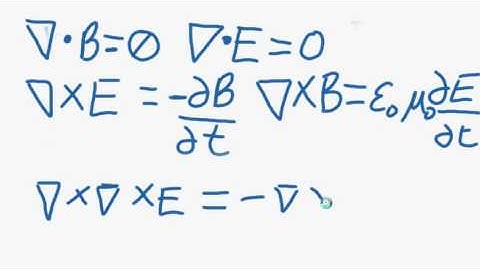 ∇·B=0 ∇·E=0
∇×E = -∂B/∂t ∇×B=ε₀μ₀∂E/∂t
∇×∇×E = -∇×